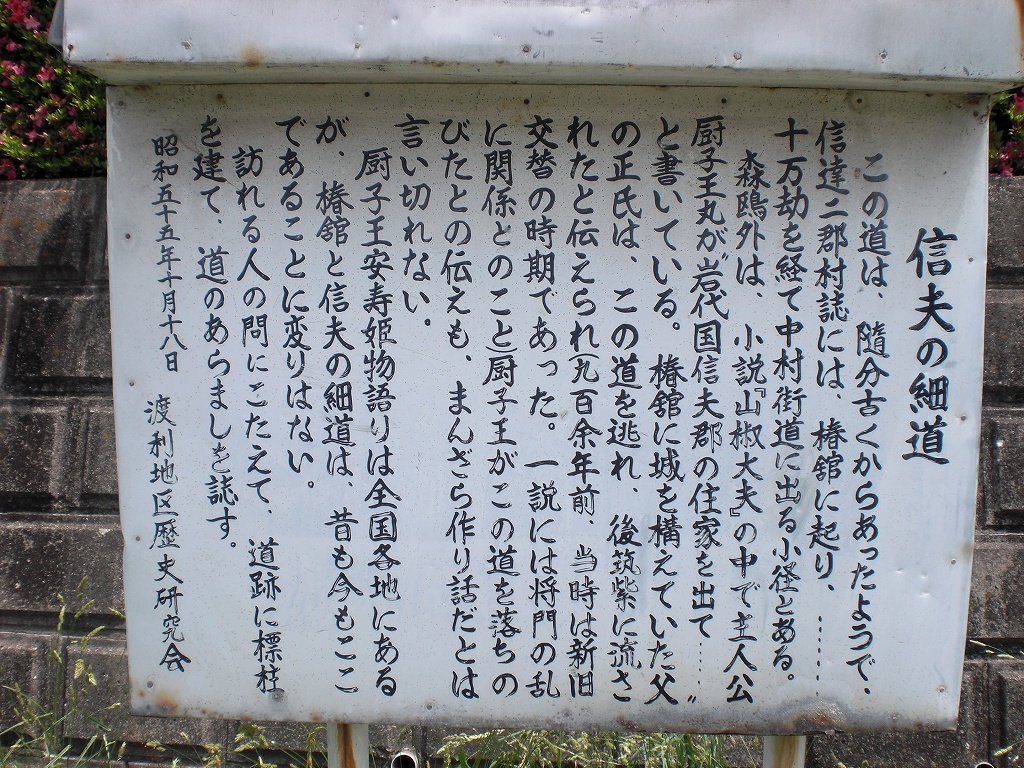 信夫の細道
この道は、随分古くからあったようで、
信達二郡村誌には、椿舘に起り、……
十万劫を経て中村街道に出る小径とある。
森鴎外は、小説『山椒大夫』の中で主人公
厨子王丸が岩代国信夫郡の住家を出て……〃
と書いている。椿舘に城を構えていた父
の正氏は、この道を逃れ、後筑紫に流さ
れたと伝えられ(九百余年前、当時は新旧
交替の時期であった。一説には将門の乱
に関係とのこと厨子王がこの道を落ちの
びたとの伝えも、まんざら作り話だとは
言い切れない。
厨子王安寿姫物語りは全国各地にある
が、椿舘と信夫の細道は、昔も今もここ
であることに変りはない。
訪れる人の問にこたえて、道跡に標柱
を建て、道のあらましを誌す。
昭和五十五年十月十八日 渡利地区歴史研究会